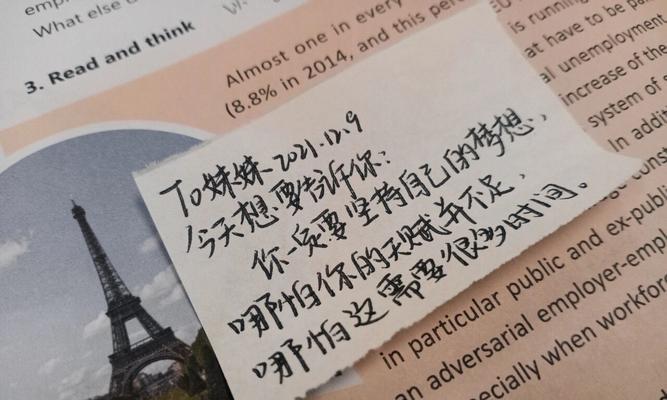 What else d
3. Read and think
Almost one in every
(8.8% in 2014, and this perce
is running
at have to be pa
unemployment
increase of the
system of s
In additi
To 妹妹 2021.12.9
今天想要告诉你：
你一定要坚持自己的梦想，
哪怕你的天赋并不足，
哪怕这需要很多时间。
public and ex-publ
in particular public and ex-pub
an adversarial employer-emp
especially when workfor